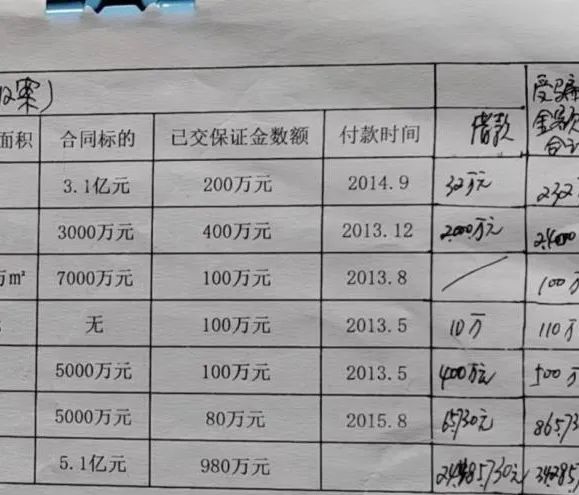 案)
面积 合同标的 已交保证金数额 付款时间 借款 受骗 金额 合计
3.1亿元 200万元 2014.9 32万元 232
3000万元 400万元 2013.12 2000万元
万㎡ 7000万元 100万元 2013.8 / 100万
无 100万元 2013.5 10万 110万
5000万元 100万元 2013.5 400万元 500万
5000万元 80万元 2015.8 65730元 86573
5.1亿元 980万元